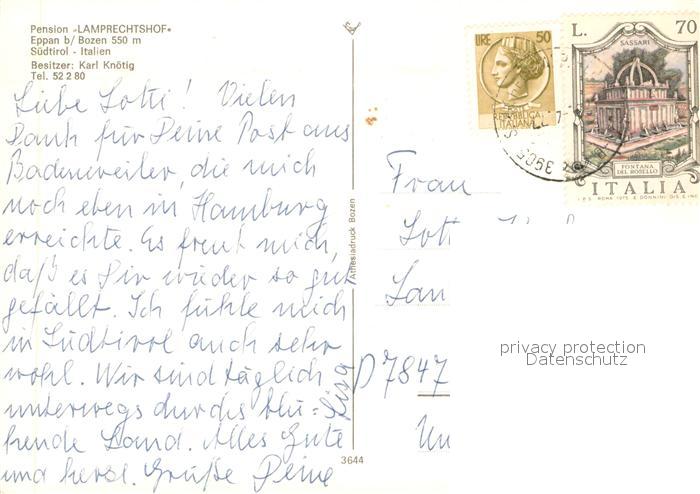 Pension »LAMPRECHTSHOF«
Eppan b/ Bozen 550 m
Südtirol - Italien
Besitzer: Karl Knötig
Tel. 52 2 80
Liebe Lotti! Vielen
Dank für Deine Post aus
Badenweiler, die mich
noch eben in Hamburg
erreichte. Es freut mich,
daß es Dir wieder so gut
gefällt. Ich fühle mich
in Südtirol auch sehr
wohl. Wir sind täglich
unterwegs durchs blü=
hende Land. Alles Gute
und herzl. Grüße Deine
Lisa
Athesiadruck Bozen
3644
LIRE 50
REPUBBLICA
ITALIANA
L. 70
SASSARI
FONTANA
DEL ROSELLO
ITALIA
I.P.S. ROMA 1975 E. DONNINI DIS. E INC.
Frau
Lott
Lan
D 7847
privacy protection
Datenschutz